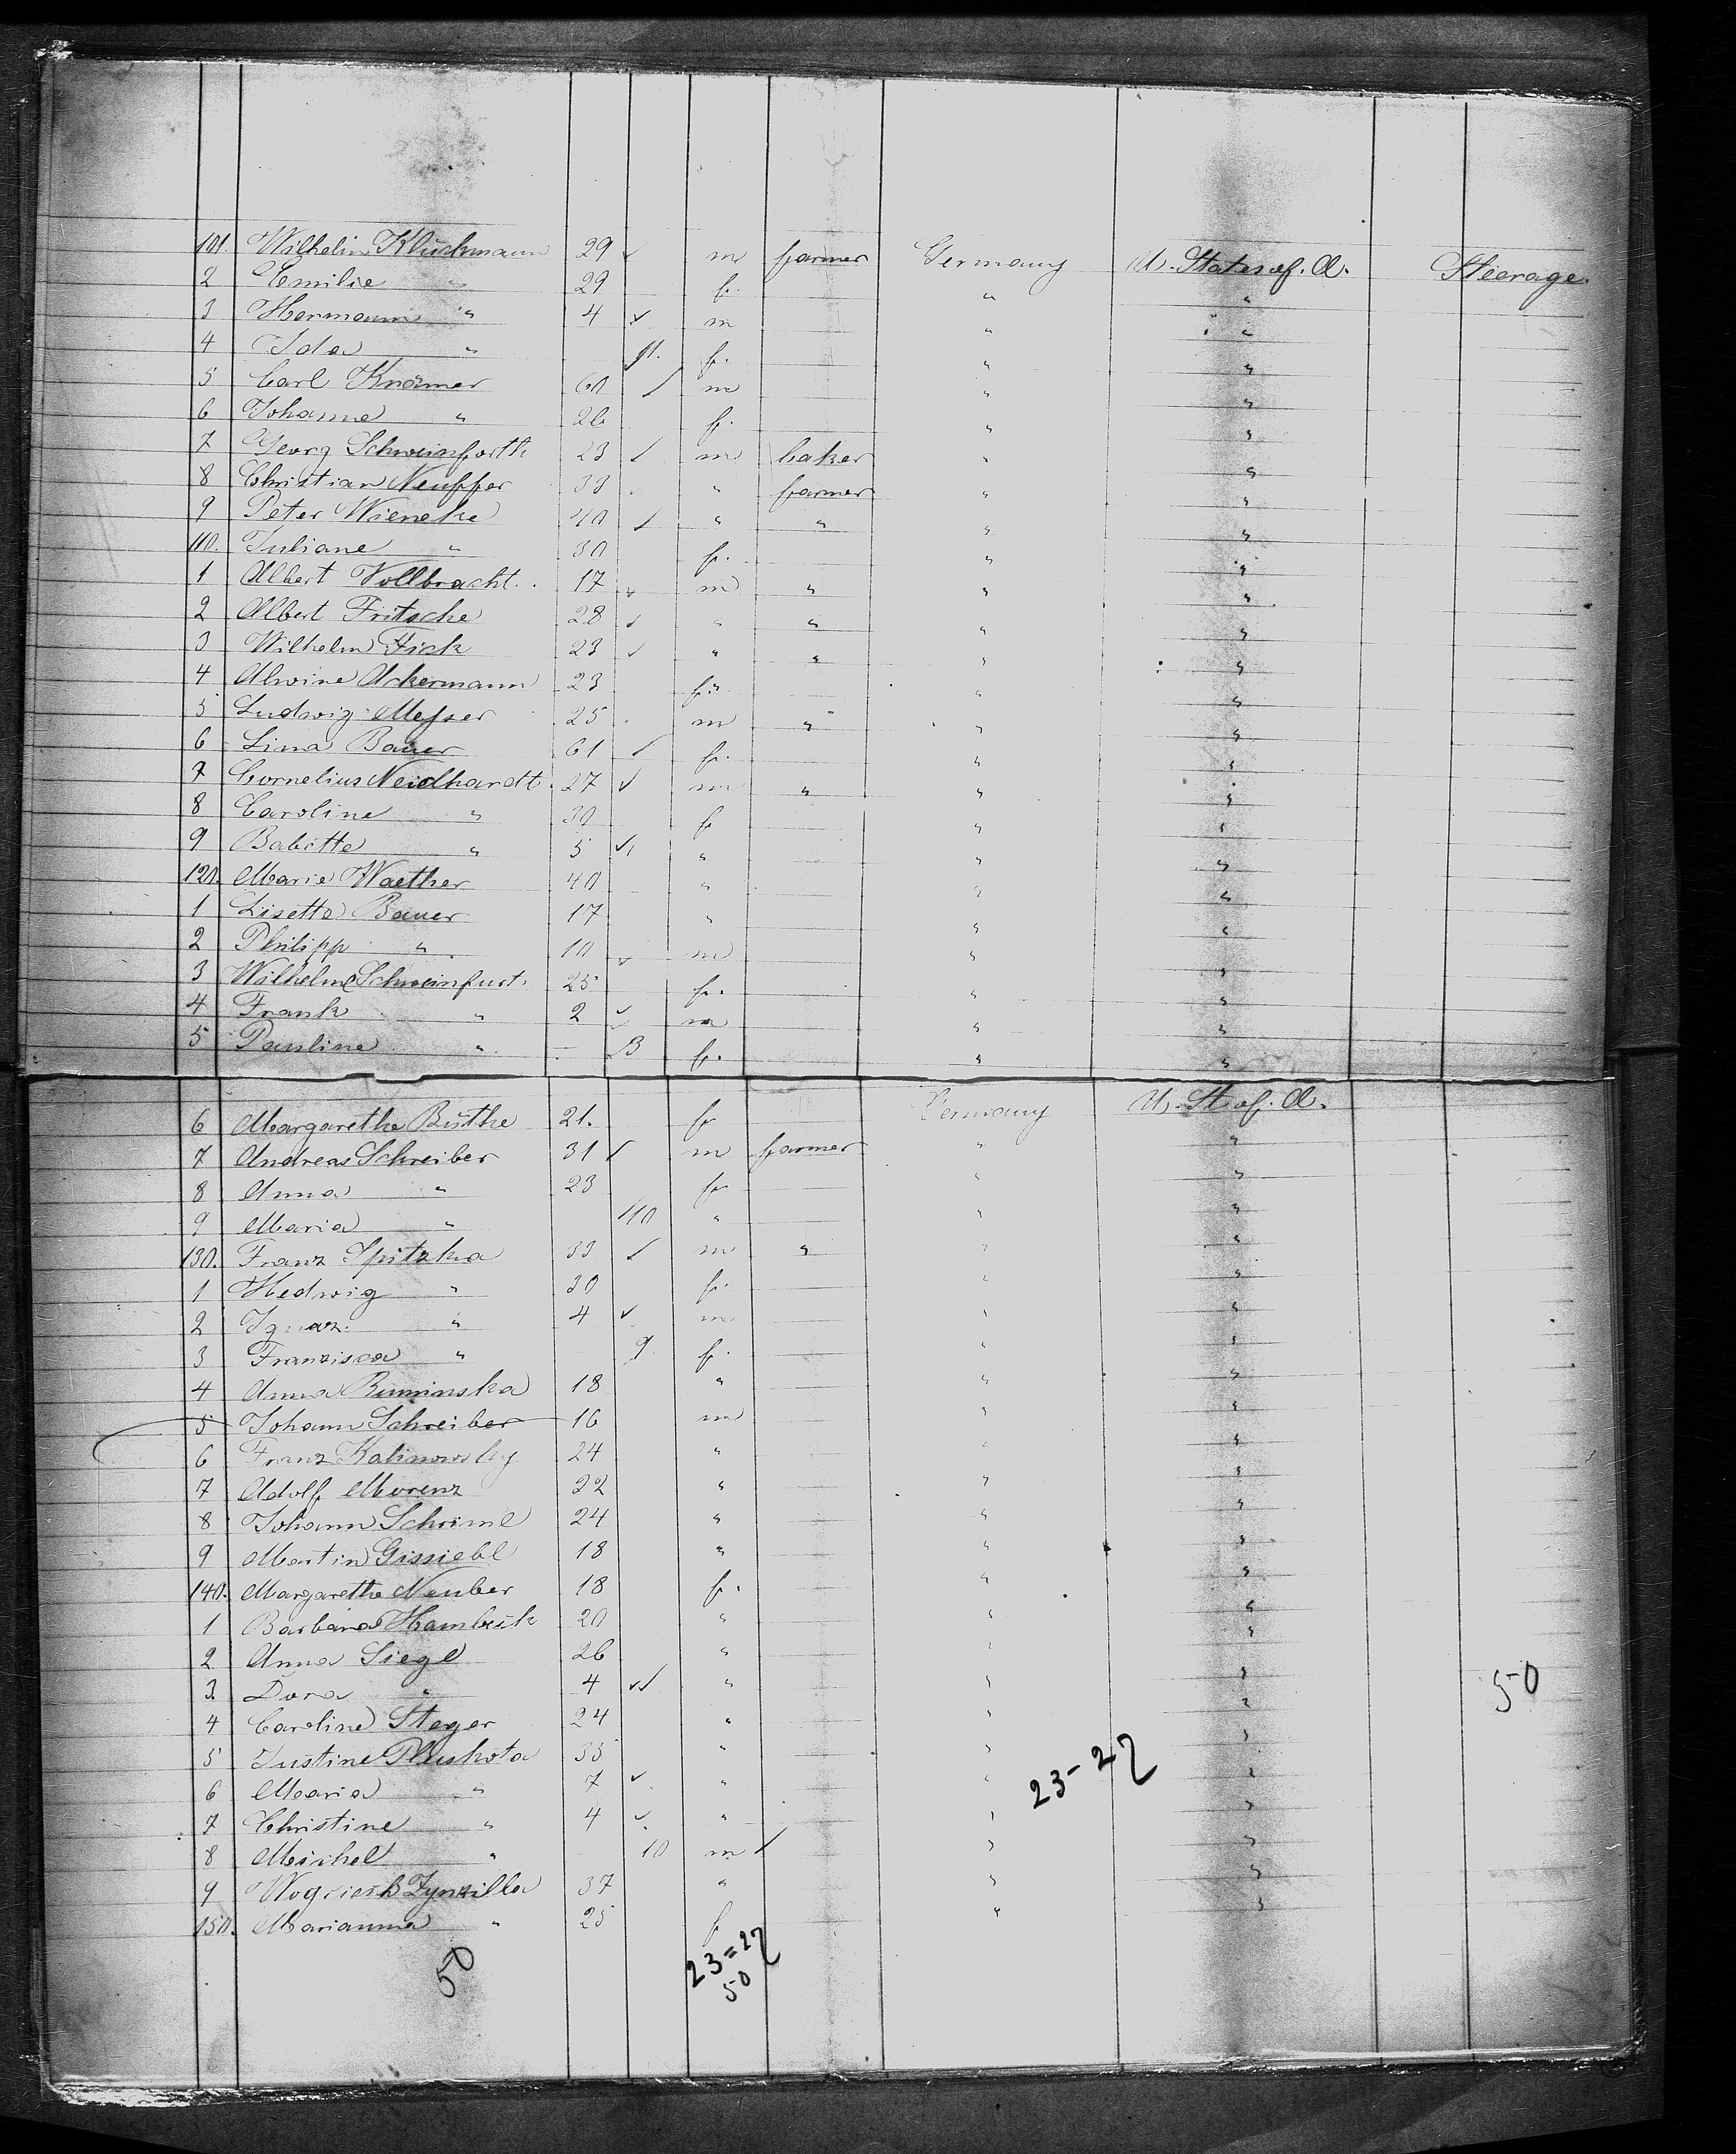 101. Wilhelm Kluckmann 29 ✓ m farmer Germany U. States of. A. Steerage.
2 Emilie " 29 f. " "
3 Hermann " 4 ✓ m " "
4 Ida " 11. f. " "
5 Carl Knörner 60 ✓ m " "
6 Johanne " 26 f. " "
7 Georg Schweinforth 23 ✓ m baker " "
8 Christian Neuffer 33 " farmer " "
9 Peter Wieneke 40 ✓ " " " "
110. Juliane " 30 f. " "
1 Albert Vollbracht. 17 ✓ m " " "
2 Albert Fritsche 28 ✓ " " " "
3 Wilhelm Fick 23 ✓ " " " "
4 Alwine Ackermann 23 f. " "
5 Ludwig Messer 25 m " " "
6 Lina Bauer 61 ✓ f. " "
7 Cornelius Neidhardt. 27 ✓ m " " "
8 Caroline " 30 f " "
9 Babette " 5 ✓ " " "
120. Marie Waether 40 " " "
1 Lisette Bauer 17 " " "
2 Philipp " 10 ✓ m " "
3 Wilhelme Schweinfurt. 25 f. " "
4 Frank " 2 ✓ m " "
5 Pauline " - 3 f. " "
6 Margarethe Büthe 21. f Germany U. St. of. A.
7 Andreas Schreiber 31 ✓ m farmer " "
8 Anna " 23 f " "
9 Maria " 10 " " "
130. Franz Spitzka 33 ✓ m " " "
1 Hedwig " 30 f. " "
2 Ignaz. " 4 ✓ m. " "
3 Franzisca " 9 f. " "
4 Anna Ruminska 18 " " "
5 Johann Schreiber 16 m " "
6 Franz Kalinowsky 24 " " "
7 Adolf Morenz 22 " " "
8 Johann Schriml 24 " " "
9 Martin Gissiebl 18 " " "
140. Margarethe Neuber 18 f. " "
1 Barbara 20 " " "
2 Anna Siegl 26 " " "
3. Dora " 4 ✓✓ " " "
50
4 Caroline Steger 24 " " "
5 Justine Pluskota 35 " " "
6 Maria " 7 ✓ " " "
23-27
7 Christine " 4 ✓ " " "
8 Michel " 10 m ✓ " "
9 37 " " "
150. Marianna " 25 f " "
50 23=27
50